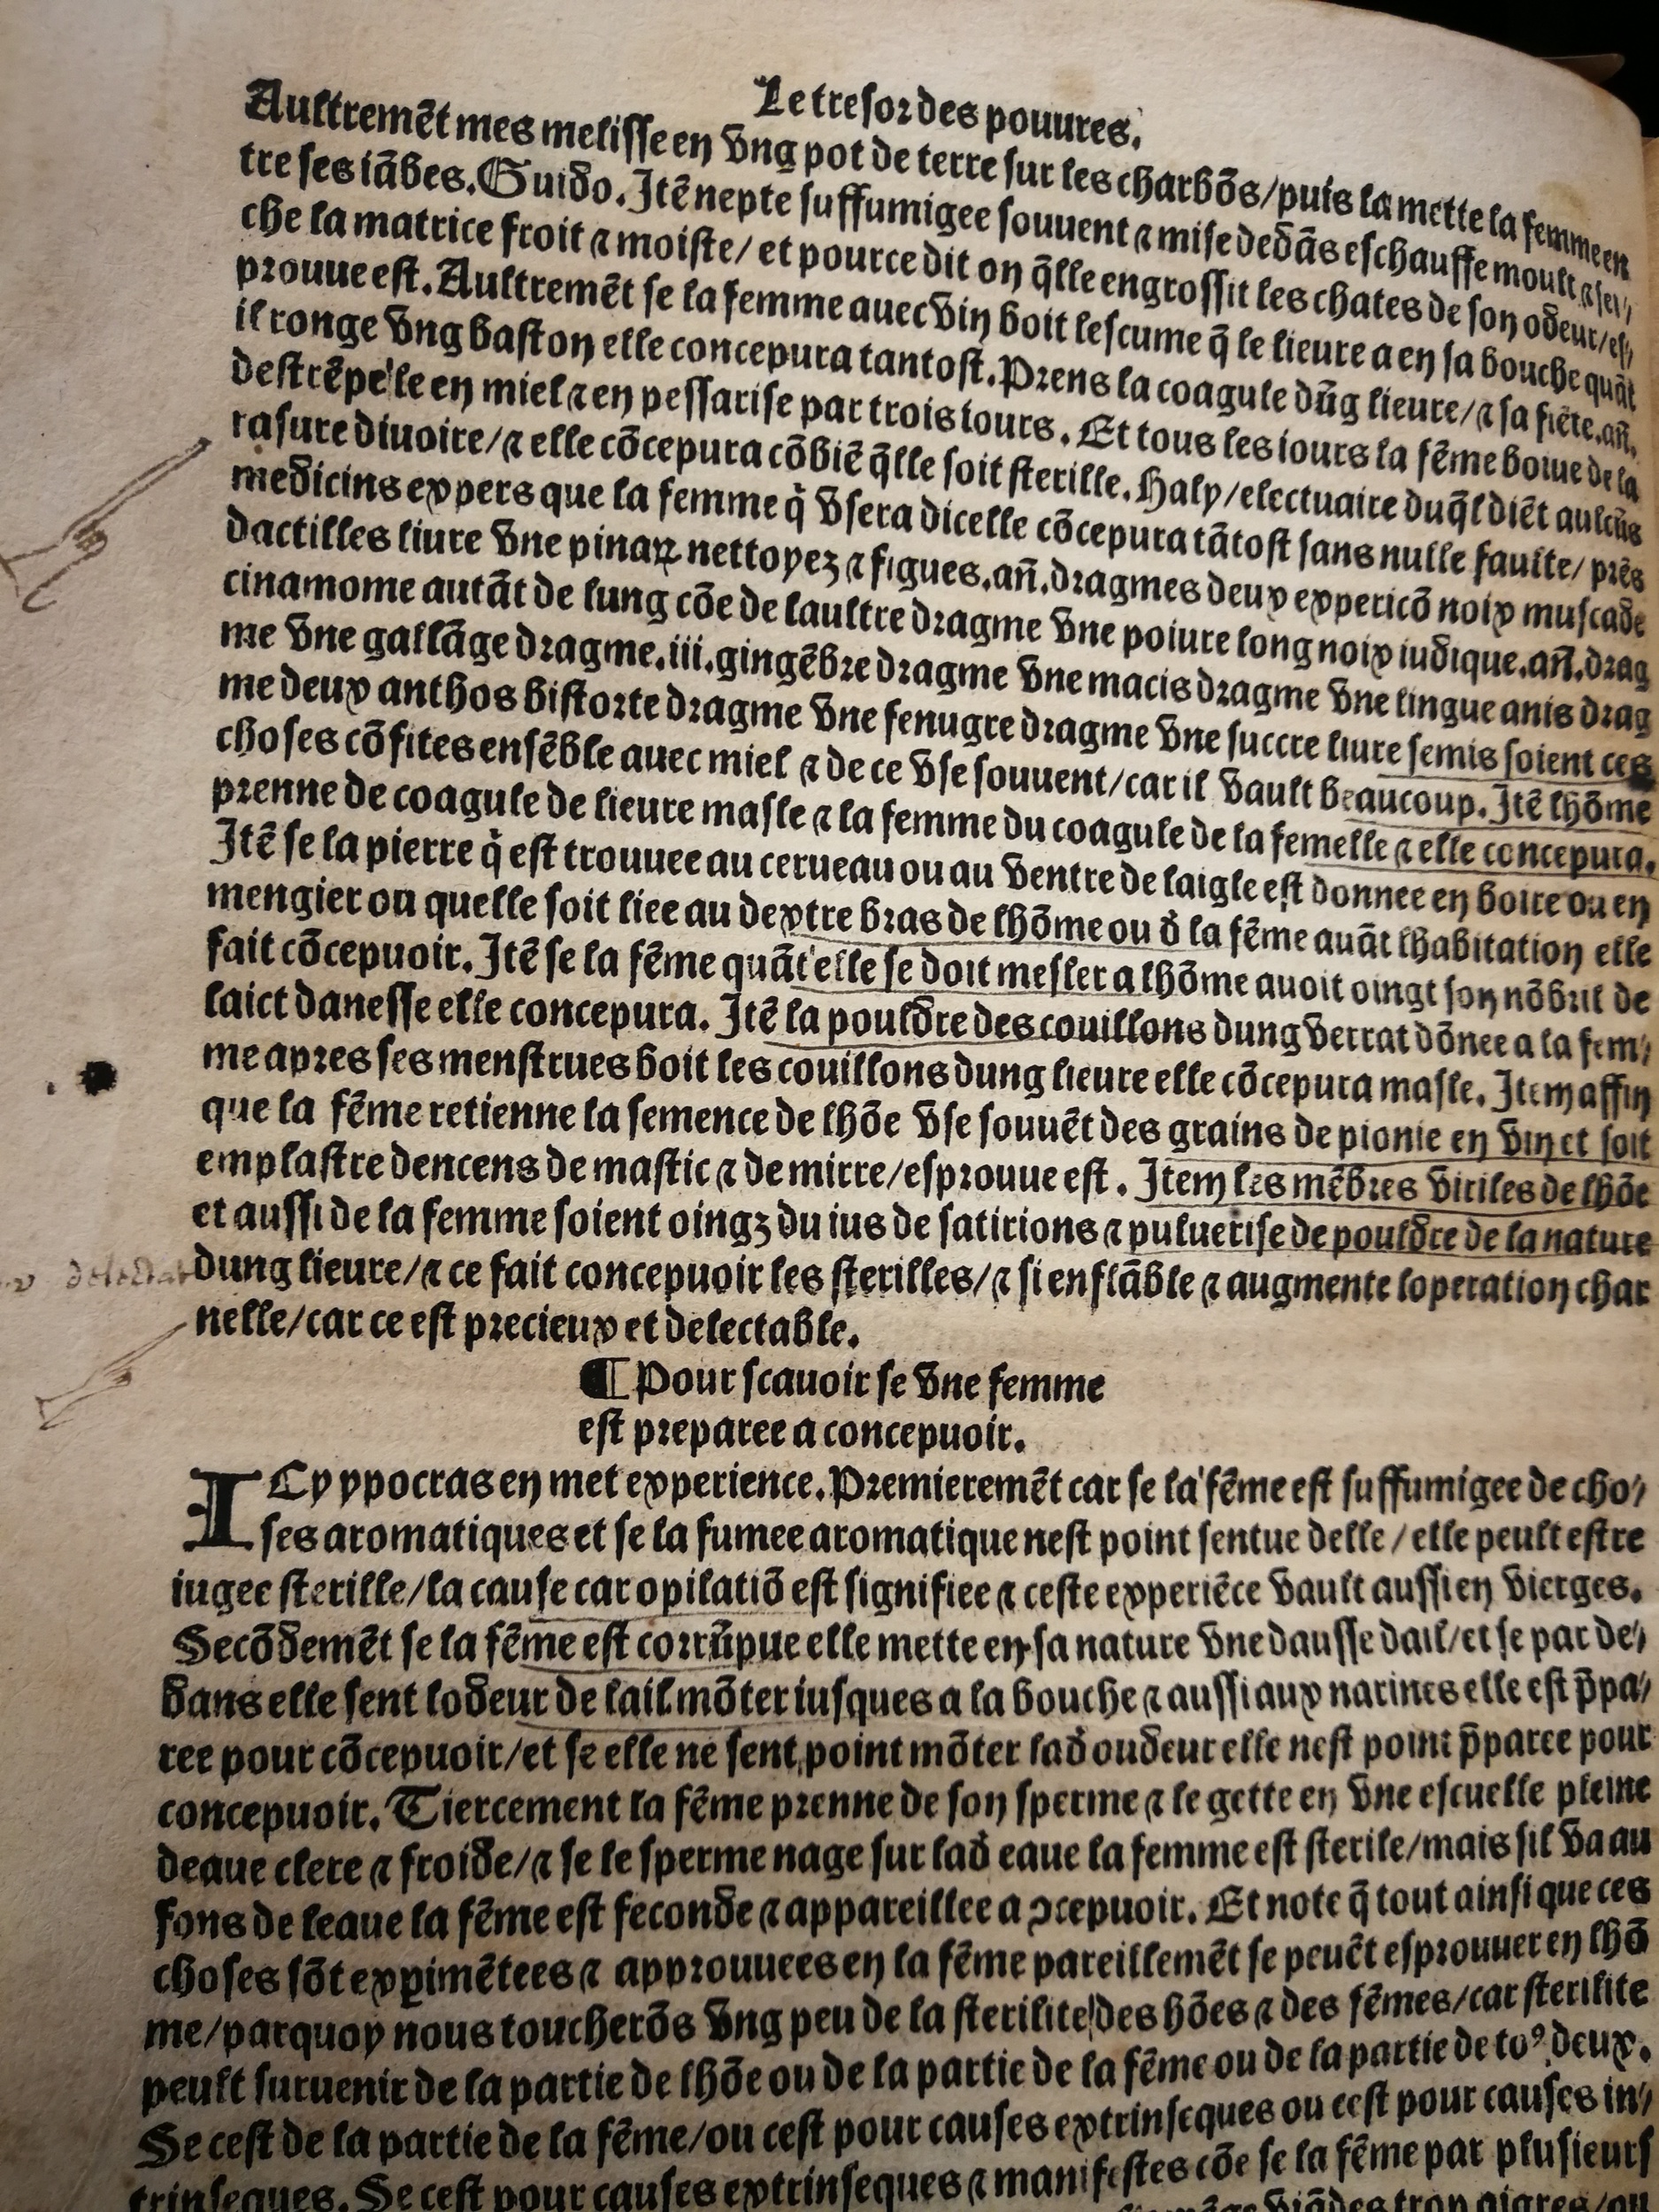 Le tresor des pouures.
Aultremẽt mes melisse en vng pot de terre sur les charbõs/puis la mette la femme en
tre ses iãbes. Guido. Itẽ nepte suffumigee souuent ⁊ mise dedãs eschauffe moult ⁊ sei/
che la matrice froit ⁊ moiste/ et pource dit on q̃lle engrossit les chates de son odeur/es/
prouue est. Aultremẽt se la femme auec vin boit lescume q̃ le lieure a en sa bouche quãt
il ronge vng baston elle concepura tantost. Prens la coagule dũg lieure/⁊ sa fiẽte.añ.
destrẽpe le en miel ⁊ en pessarise par trois iours. Et tous les iours la fẽme boiue de la
rasure diuoire/⁊ elle cõcepura cõbiẽ q̃lle soit sterille. Haly/electuaire duq̃l diẽt aulcũs
medicins expers que la femme q̇ vsera dicelle cõcepura tãtost sans nulle faulte/ prẽs
dactilles liure vne pinaꝝ nettoyez ⁊ figues.añ.dragmes deux expericõ noix muscade
cinamome autãt de lung cõe de laultre dragme vne poiure long noix iudique.añ.drag
me vne gallãge dragme.iii.gingẽbre dragme vne macis dragme vne lingue anis drag
me deux anthos bistorte dragme vne fenugre dragme vne succre liure semis soient ces
choses cõfites ensẽble auec miel ⁊ de ce vse souuent/car il vault beaucoup. Itẽ lhõme
prenne de coagule de lieure masle ⁊ la femme du coagule de la femelle ⁊ elle concepura.
Itẽ se la pierre q̇ est trouuee au cerueau ou au ventre de laigle est donnee en boire ou en
mengier ou quelle soit liee au dextre bras de lhõme ou d̓ la fẽme auãt lhabitation elle
fait cõcepuoir. Itẽ se la fẽme quãt elle se doit mesler a lhõme auoit oingt son nõbril de
laict danesse elle concepura. Itẽ la pouldre des couillons dung verrat dõnee a la fem/
me apres ses menstrues boit les couillons dung lieure elle cõcepura masle. Item affin
que la fẽme retienne la semence de lhõe vse souuẽt des grains de pionie en vin et soit
emplastre dencens de mastic ⁊ de mirre/esprouue est. Item les mẽbres viriles de lhõe
et aussi de la femme soient oingz du ius de satirions ⁊ puluerise de pouldre de la nature
dung lieure/⁊ ce fait concepuoir les sterilles/⁊ si enflãble ⁊ augmente loperation char
nelle/car ce est precieux et delectable.
¶ Pour scauoir se vne femme
est preparee a concepuoir.
ICy ypocras en met experience. Premieremẽt car se la fẽme est suffumigee de cho/
ses aromatiques et se la fumee aromatique nest point sentue delle/elle peult estre
iugee sterille/la cause car opilatiõ est signifiee ⁊ ceste experiẽce vault aussi en vierges.
Secõdemẽt se la fẽme est corrũpue elle mette en sa nature vne dausse dail/et se par de/
dans elle sent lodeur de lail mõter iusques a la bouche ⁊ aussi aux narines elle est p̃pa/
ree pour cõcepuoir/et se elle ne sent point mõter lad̓ oudeur elle nest point p̃paree pour
concepuoir. Tiercement la fẽme prenne de son sperme ⁊ le gette en vne escuelle pleine
deaue clere ⁊ froide/⁊ se le sperme nage sur lad̓ eaue la femme est sterile/mais sil va au
fons de leaue la fẽme est feconde ⁊ appareillee a ↄcepuoir. Et note q̃ tout ainsi que ces
choses sõt exꝑimẽtees ⁊ approuuees en la fẽme pareillemẽt se peuẽt esprouuer en lhõ
me/parquoy nous toucherõs vng peu de la sterilite des hões ⁊ des fẽmes/car sterilite
peult suruenir de la partie de lhõe ou de la partie de la fẽme ou de la partie de toꝰ deux.
Se cest de la partie de la fẽme/ou cest pour causes extrinseques ou cest pour causes in/
trinseques. Se cest pour causes extrinseques ⁊ manifestes cõe se la fẽme par plusieurs
viãdes trop aigres/ou